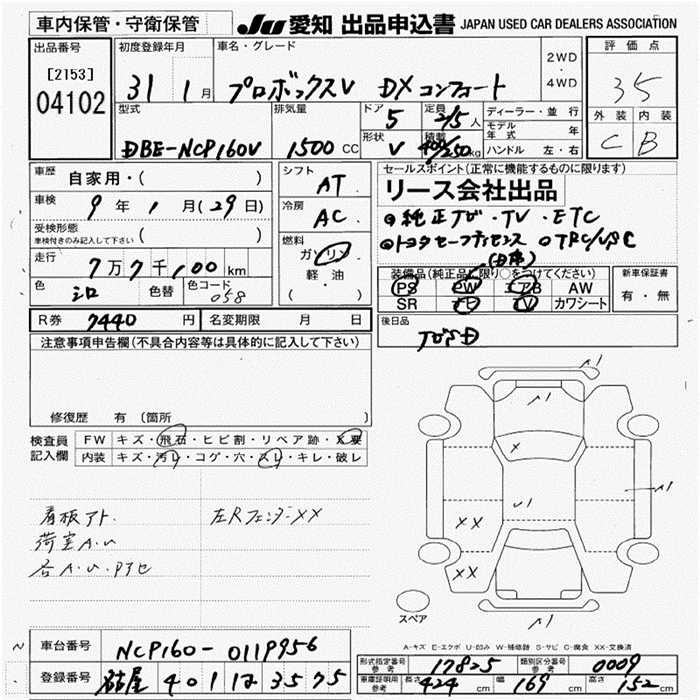 車内保管・守衛保管
JU 愛知 出品申込書 JAPAN USED CAR DEALERS ASSOCIATION
出品番号 初度登録年月 車名・グレード 評価点
[2153] 04102
31年 1月 プロボックスV DXコンフォート 2WD・4WD 3.5
型式 排気量 ドア 定員 ディーラー・並行 外装 内装
DBE-NCP160V 1500 CC 5 2/5人 モデル年式 年 C B
形状 V 積載 400/250kg ハンドル 左・右
車歴 自家用・( ) シフト AT セールスポイント(正常に機能するものに限ります)
リース会社出品
車検 9年 1月(29日) 冷房 AC
純正ナビ・TV・ETC
受検形態 車検付きのみ記入して下さい ( )
燃料 ガソリン 軽油 ( )
トヨタセーフティセンス TRC/VSC
走行 7万7千100km
色 シロ 色替 色コード 058
装備品(純正品に限り○をつけてください) 新車保証書
PS PW エアB AW 有・無
SR ナビ TV カワシート
R券 7440円 名変期限 月 日 後日品
ナビSD
注意事項申告欄(不具合内容等は具体的に記入して下さい)
修復歴 有(箇所
検査員記入欄 FW キズ・飛石・ヒビ割・リペア跡・X要
内装 キズ・汚レ・コゲ・穴・スレ・キレ・破レ
看板アト. 左Rフェンダ-XX
荷室A.U
各A.U.Pアセ
スペア
A-キズ E-エクボ U-凹み W-補修跡 S-サビ C-腐食 XX-交換済
車台番号 NCP160-0119956
登録番号 名古屋 401 は 3575
形式指定番号 参考 17825 類別区分番号 参考 0009
車庫証明用 参考 長さ 424cm 幅 169cm 高さ 152cm